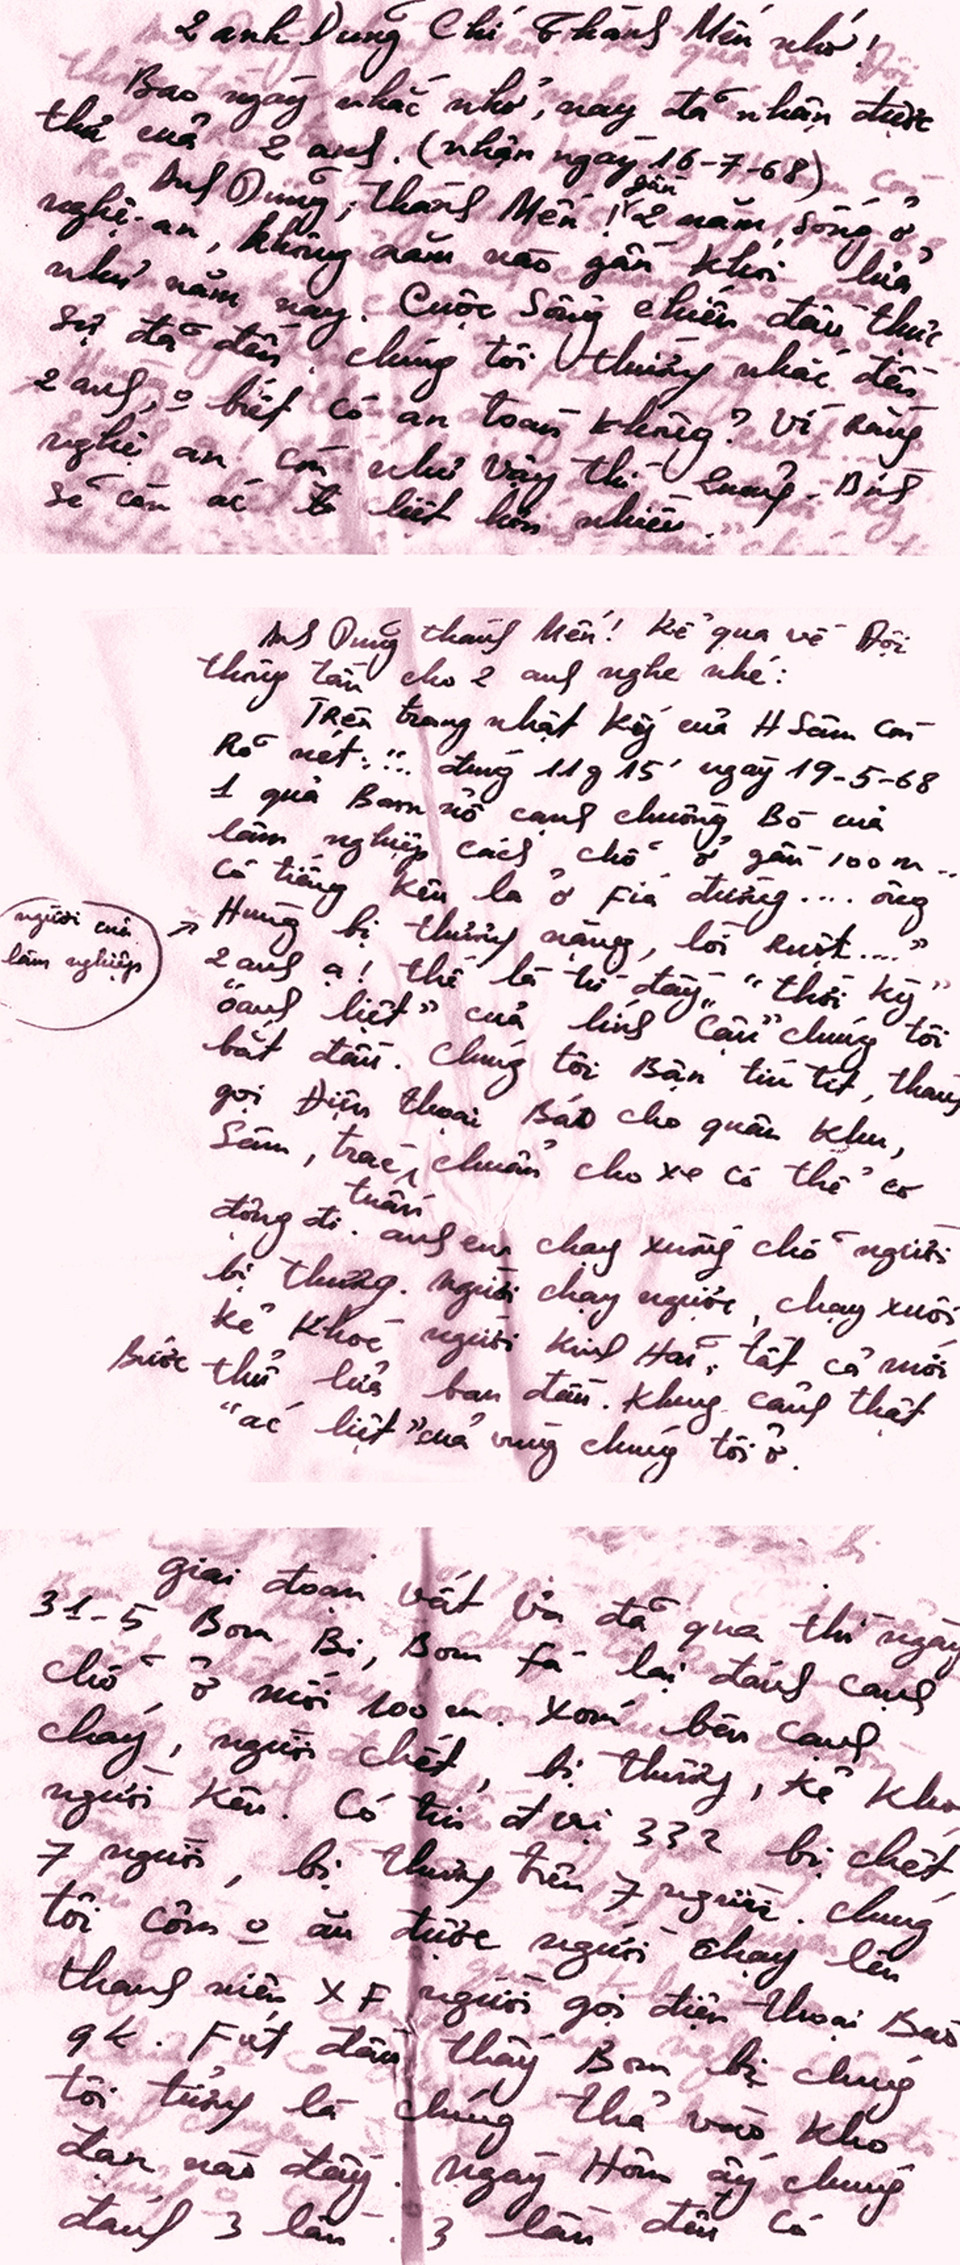 2 anh Dũng Chí Thành Mến nhớ!
Bao ngày nhắc nhở, nay đã nhận được
thư của 2 anh. (nhận ngày 16-7-68)
Anh Dũng, thành Mến! gần 2 năm sống ở
nghệ-an, không năm nào gần khói lửa
như năm nay. Cuộc Sống chiến đấu thực
sự đã đến. chúng tôi thường nhắc đến
2 anh, o biết có an toàn không? Vì Rằng
nghệ an còn như vậy thì Quảng-Bình
sẽ còn ác liệt hơn nhiều.
Anh Dũng thành Mến! Kể qua về Đội
thông tấn cho 2 anh nghe nhé:
Trên trang nhật ký của H Sâm còn
Rõ nét: "... đúng 11g15' ngày 19-5-68
1 quả Bom nổ cạnh chuồng Bò của
lâm nghiệp cách chỗ ở gần 100m...
Có tiếng kên la ở Fía đường.... ông
Hưng bị thương nặng, lòi Ruột...."
người của
lâm nghiệp
2 anh ạ! thế là từ đây, "thời kỳ"
"oanh liệt" của lính "Cậu" chúng tôi
bắt đầu. Chúng tôi Bận túi tít, thanh
gọi Điện thoại Báo cho quân khu,
Sâm, trác, tuấn chuẩn cho xe có thể cơ
động đi. anh em chạy xuống chỗ người
bị thương. người chạy ngược, chạy xuôi
kẻ khóc người kinh Hãi, tất cả mới
Bước thử lửa ban đầu. Khung cảnh thật
"ác liệt" của vùng chúng tôi ở.
giai đoạn vất vả đã qua thì ngày
31-5 Bom Bi, Bom Fá lại đánh cạnh
chỗ ở mới 100m. Xóm bên cạnh
cháy, người chết, bị thương, kẻ khó
người kên. Có tin đ vị 332 bị chết
7 người, bị thương trên 7 người. chúng
tôi cơm o ăn được người chạy lên
thanh niên XF người gọi điện thoại Báo
qk. Fút đầu thấy Bom bi chúng
tôi tưởng là chúng thả vào kho
đạn nào đấy. Ngày Hôm ấy chúng
đánh 3 lần. 3 lần đều có